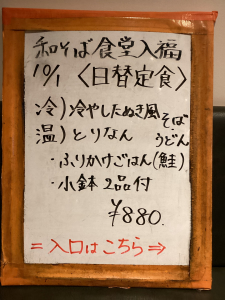 和そば食堂入福
10/1 〈日替定食〉
冷)冷やしたぬき風そば
温)とりなん うどん
・ふりかけごはん(鮭)
・小鉢2品付
¥880.
=入口はこちら⇒